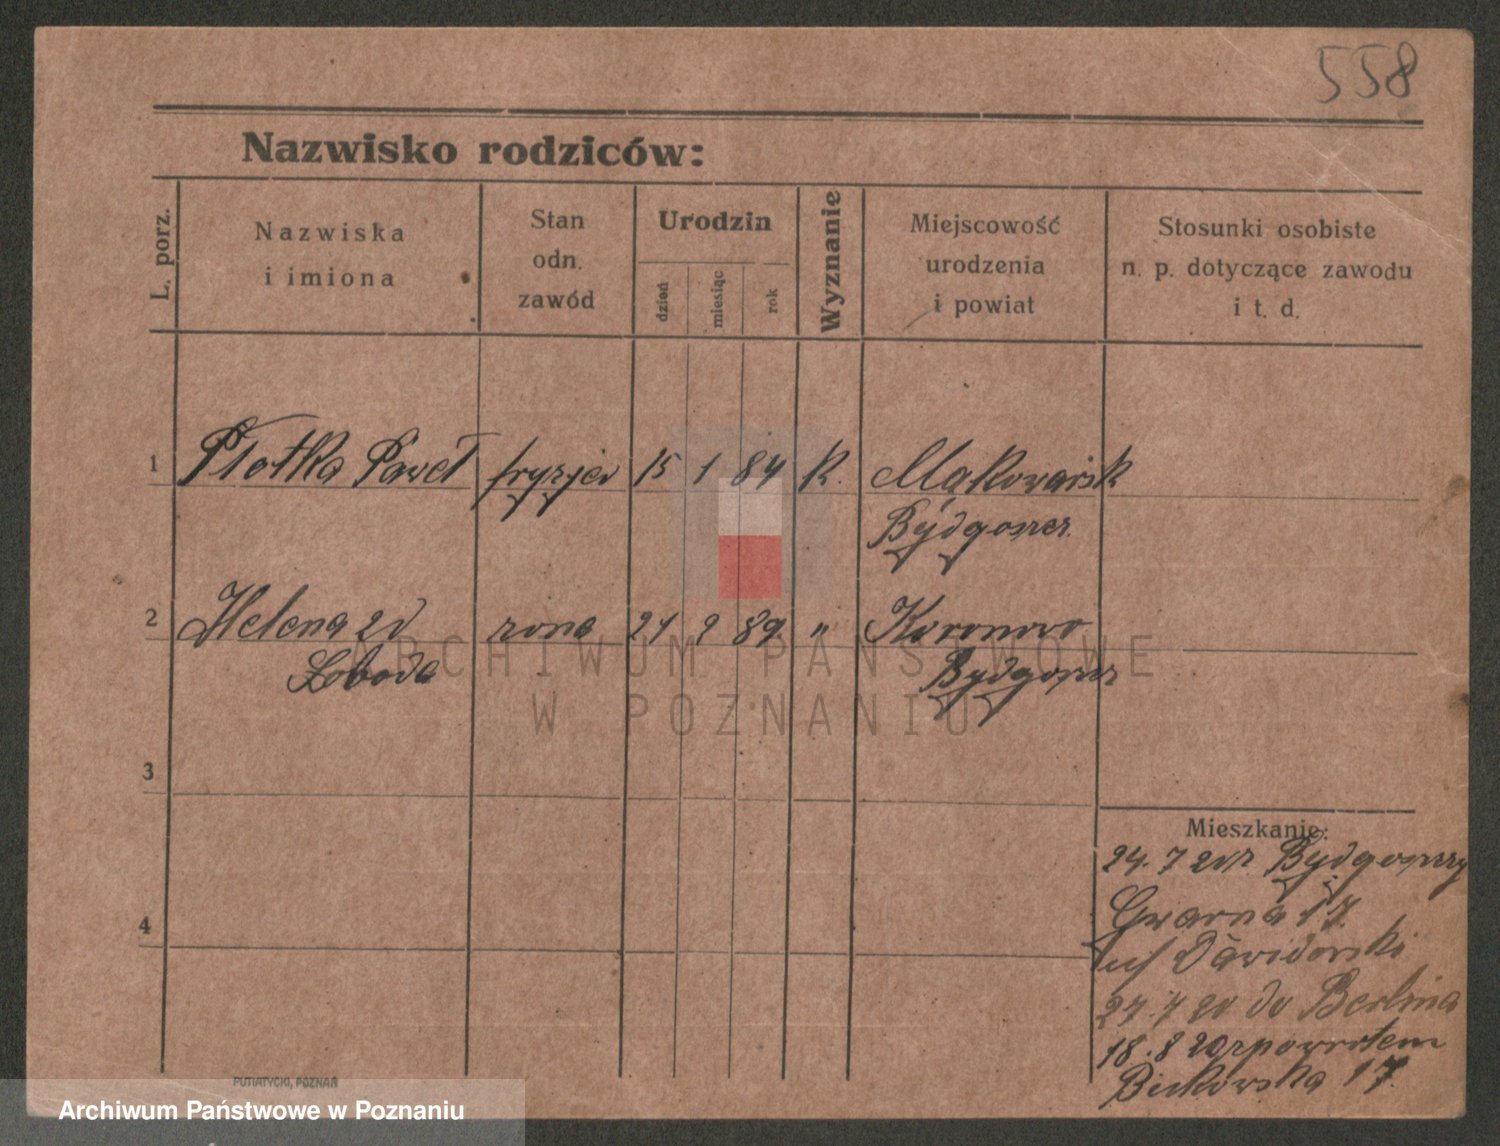 558
Nazwisko rodziców:
L. porz.
Nazwiska
i imiona
Stan
odn.
zawód
Urodzin
dzień
miesiąc
rok
Wyznanie
Miejscowość
urodzenia
i powiat
Stosunki osobiste
n. p. dotyczące zawodu
i t. d.
1 Płotka Paweł fryzjer 15 1 84 K.
Bydgoszcz
2 Helena zd żona 21 2 89. " Koronowo
Łoboda Bydgoszcz
3
4
Mieszkanie:
24.7 20 z Bydgoszczy
Gwarna 17
Dawidowski
27.7 20 do Berlina
18.8 20 zpowrotem
17.
PUTIATYCKI, POZNAŃ
ARCHIWUM PAŃSTWOWE
W POZNANIU
Archiwum Państwowe w Poznaniu